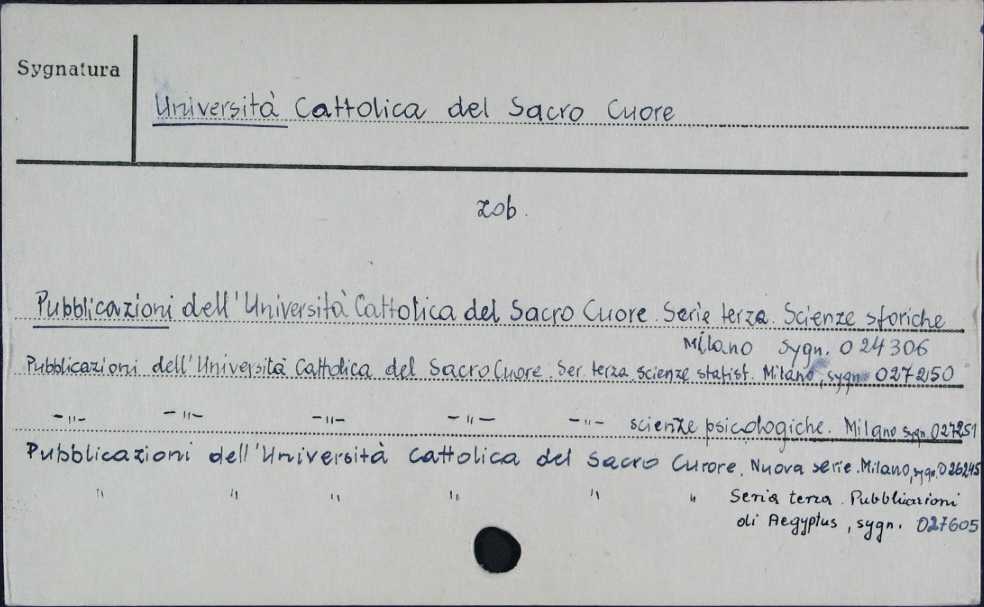 Sygnatura
Università Cattolica del Sacro Cuore
zob.
Pubblicazioni dell'Università Cattolica del Sacro Cuore. Serie terza. Scienze storiche
Milano sygn. 024306
Pubblicazioni dell'Università Cattolica del Sacro Cuore. Ser. terza. scienze statist. Milano, sygn. 027250
-"- -"- -"- -"- -"- scienze psicologiche. Milano sygn. 027251
Pubblicazioni dell'Università Cattolica del Sacro Curore. Nuova serie. Milano, sygn. 026245
" " " " " " Seria terza. Pubblicazioni
di Aegyptus, sygn. 027605